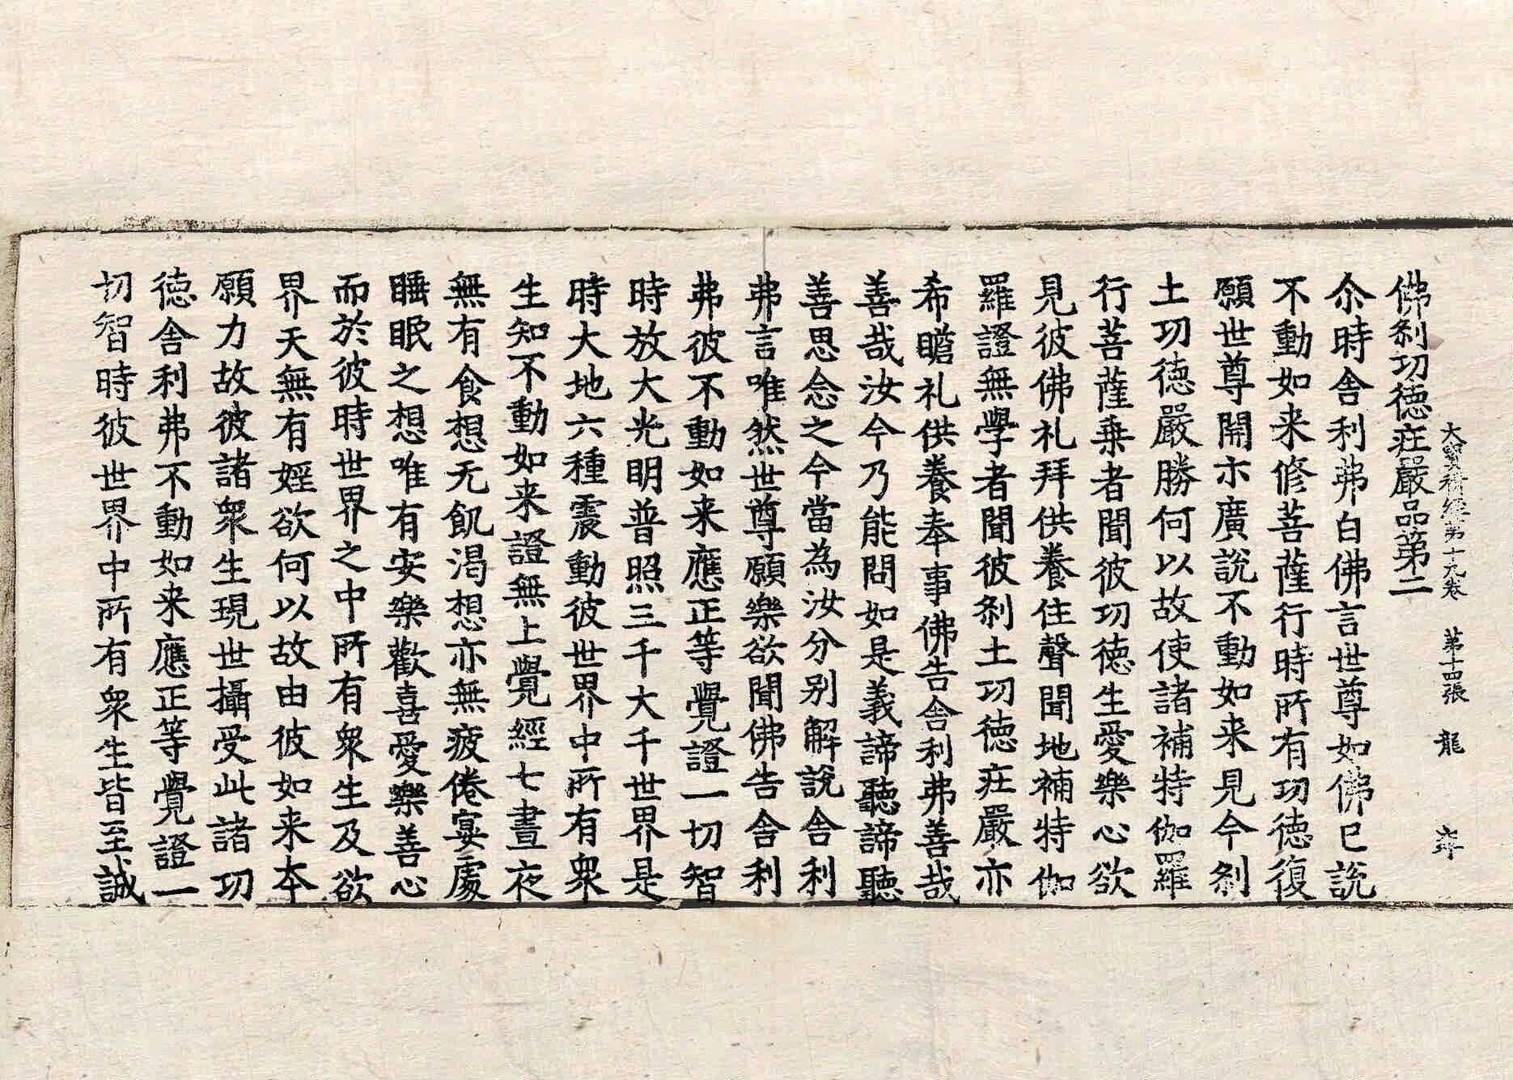 大寶積經第十九卷 第十四張 龍
佛刹功德莊嚴品第二
尒時舍利弗白佛言世尊如佛已說
不動如来修菩薩行時所有功德復
願世尊開示廣說不動如来見今刹
土功德嚴勝何以故使諸補特伽羅
行菩薩乗者聞彼功德生愛樂心欲
見彼佛礼拜供養住聲聞地補特伽
羅證無學者聞彼刹土功德莊嚴亦
希瞻礼供養奉事佛告舍利弗善哉
善哉汝今乃能問如是義諦聽諦聽
善思念之今當為汝分别解說舍利
弗言唯然世尊願樂欲聞佛告舍利
弗彼不動如来應正等覺證一切智
時放大光明普照三千大千世界是
時大地六種震動彼世界中所有衆
生知不動如来證無上覺經七晝夜
無有食想无飢渴想亦無疲倦宴處
睡眠之想唯有安樂歡喜愛樂善心
而於彼時世界之中所有衆生及欲
界天無有婬欲何以故由彼如来本
願力故彼諸衆生現世攝受此諸功
德舍利弗不動如来應正等覺證一
切智時彼世界中所有衆生皆至誠